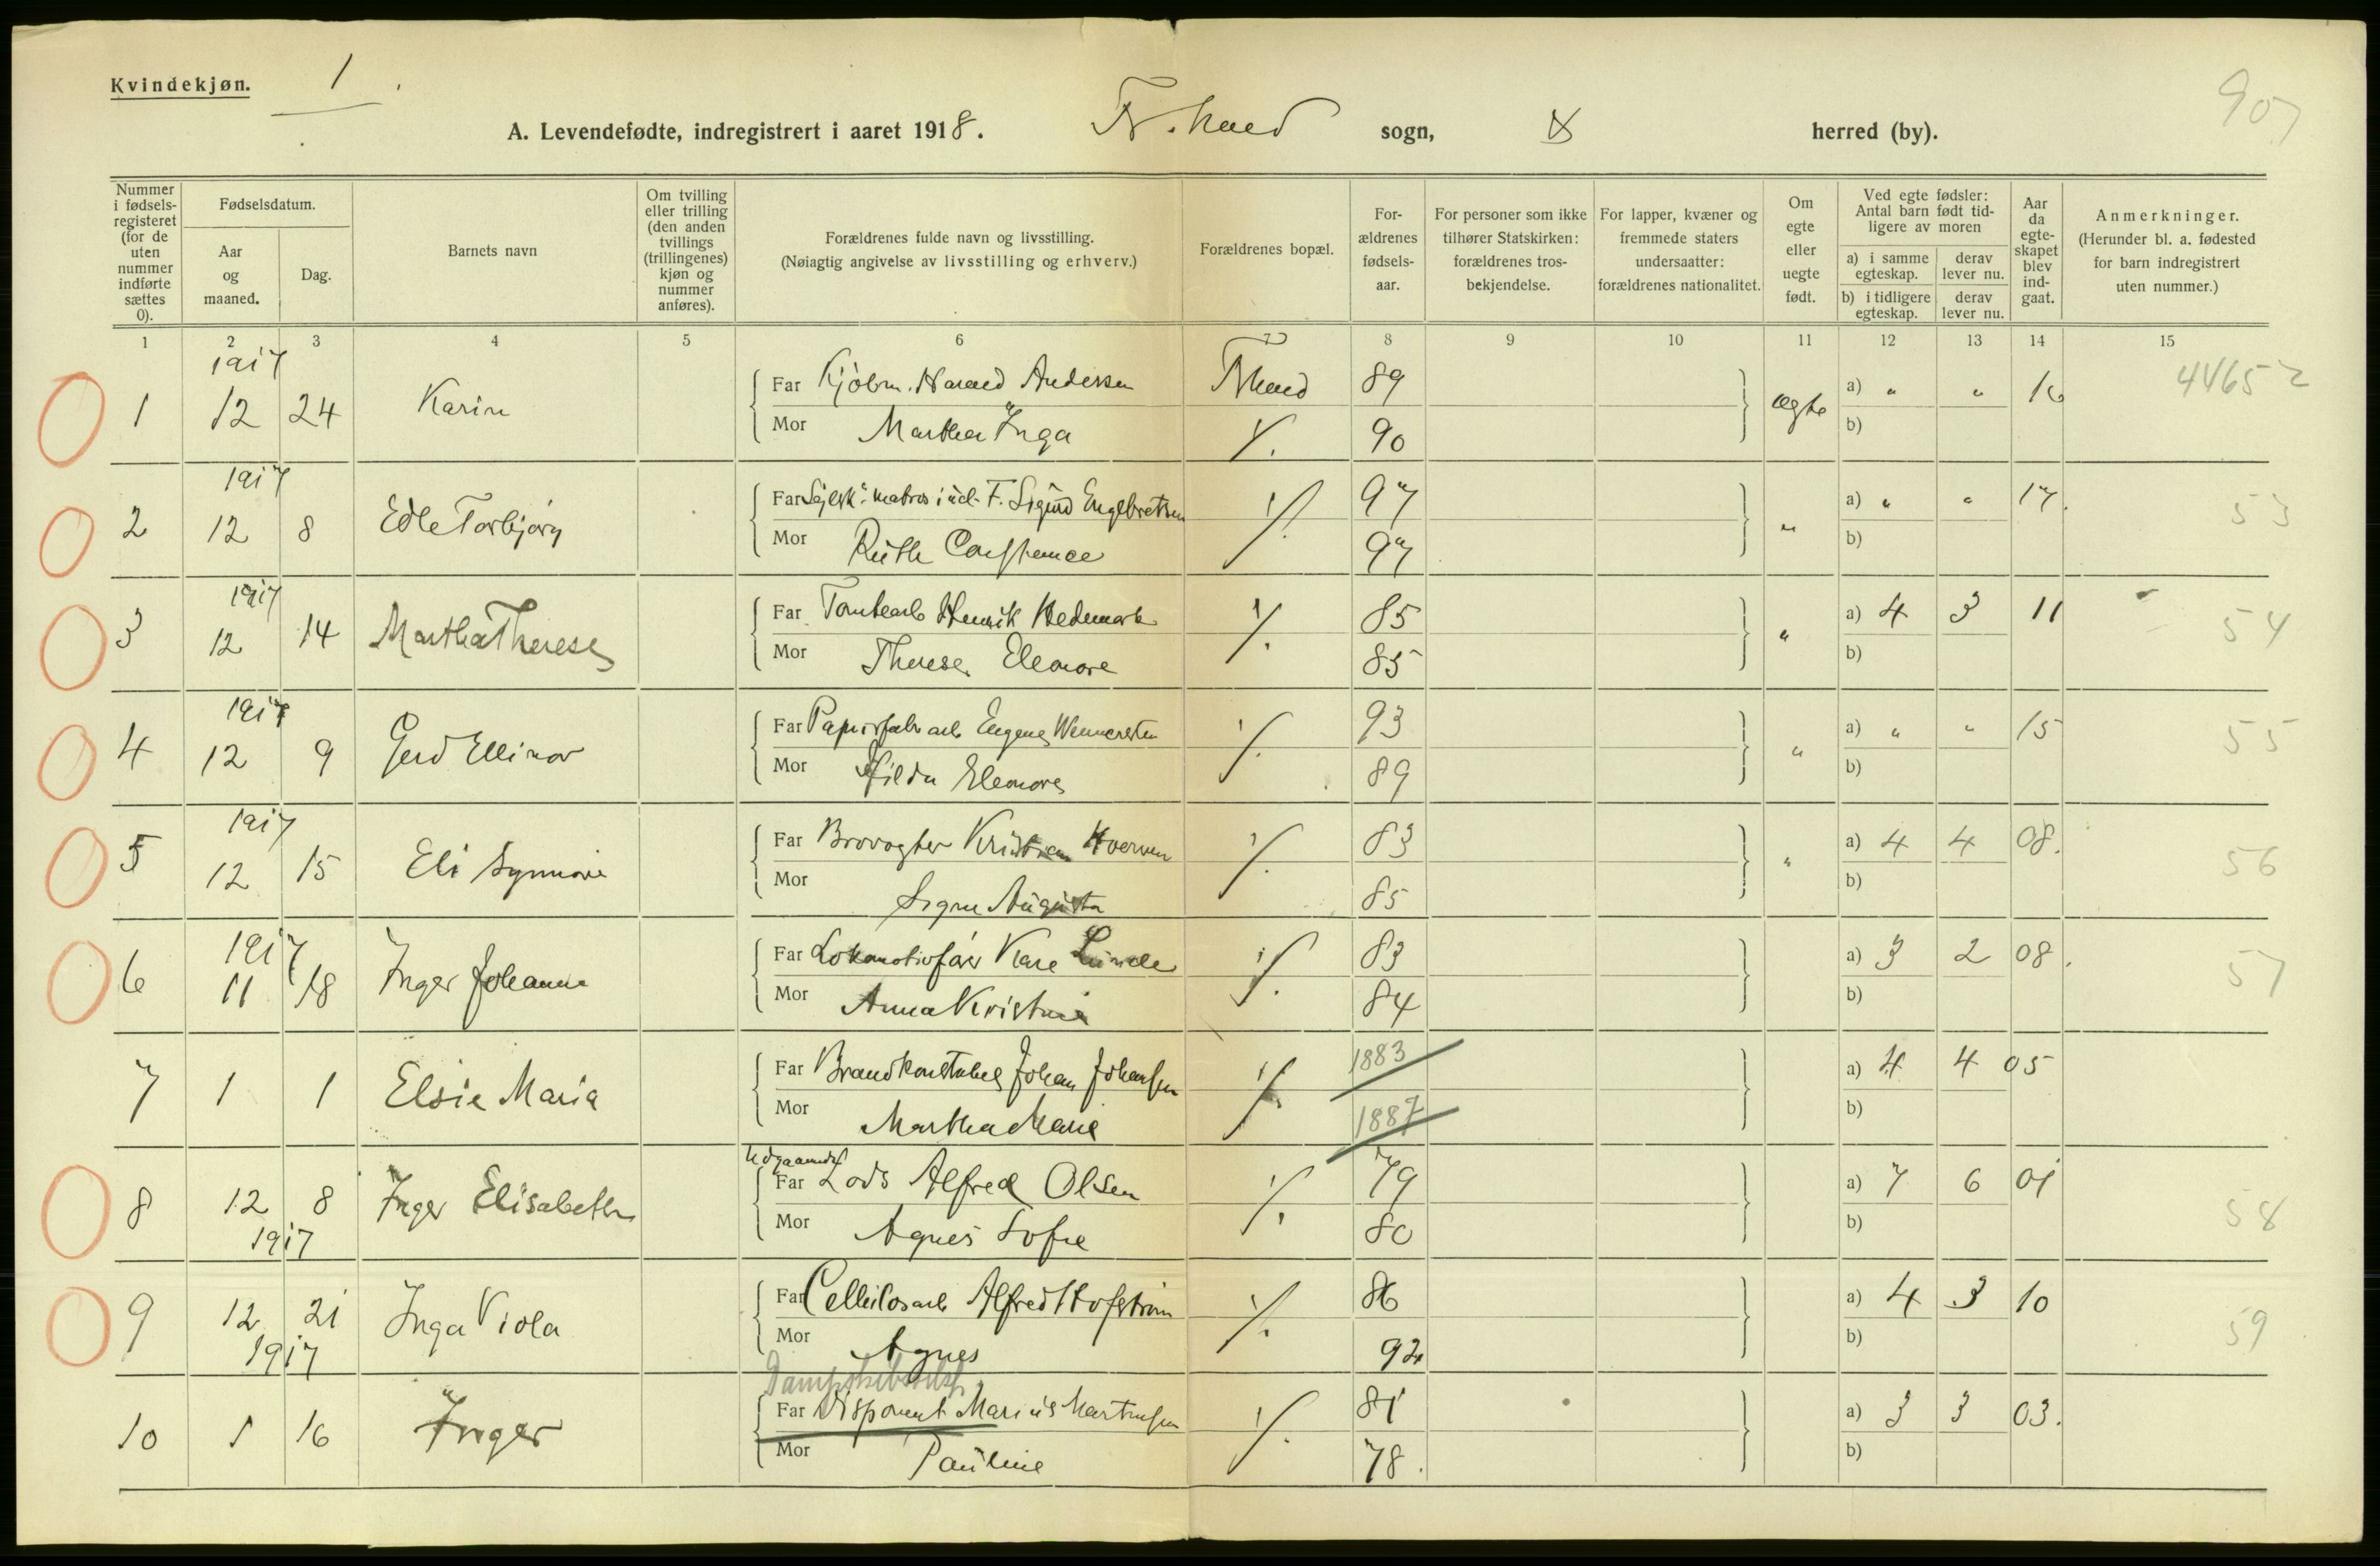 Kvindekjøn. 1
907
A. Levendefødte, indregistrert i aaret 1918. Fr.stad sogn, herred (by).
Nummer i fødselsregisteret (for de uten nummer indførte sættes 0).
Fødselsdatum.
Aar og maaned.
Dag.
Barnets navn
Om tvilling eller trilling (den anden tvillings (trillingenes) kjøn og nummer anføres).
Forældrenes fulde navn og livsstilling. (Nøiagtig angivelse av livsstilling og erhverv.)
Forældrenes bopæl.
Forældrenes fødselsaar.
For personer som ikke tilhører Statskirken: forældrenes trosbekjendelse.
For lapper, kvæner og fremmede staters undersaatter: forældrenes nationalitet.
Om egte eller uegte født.
Ved egte fødsler: Antal barn født tidligere av moren
a) i samme egteskap. derav lever nu.
b) i tidligere egteskap. derav lever nu.
Aar da egteskapet blev indgaat.
Anmerkninger. (Herunder bl. a. fødested for barn indregistrert uten nummer.)
1 2 3 4 5 6 7 8 9 10 11 12 13 14 15
1917
1 12 24 Karin Far Kjøbm. Harald Andersen Fr.stad 89 ægte a) " " 16 44652
Mor Martha Inga ٪ 90 b)
1917
2 12 8 Edle Torbjørg Far matros i udl. F. Sigurd Engebretsen ٪ 97 " a) " " 17. 53
Mor Ruth Constance 97 b)
1917
3 12 14 Martha Therese Far Tomtearb Henrik Hedemark ٪ 85 " a) 4 3 11 54
Mor Therese Eleonore 85 b)
1917
4 12 9 Gerd Ellinor Far Papirfabr arb Eugen ٪ 93 " a) " " 15 55
Mor Hilda Eleonore 89 b)
1917
5 12 15 Eli Synnøve Far Brovogter Kristian ٪ 83 " a) 4 4 08. 56
Mor Signe Augusta 85 b)
1917
6 11 18 Inger Johanne Far Lokomotivfører Kare Lunde ٪ 83 a) 3 2 08. 57
Mor Anna Kristine 84 b)
7 1 1 Elsie Maria Far Brandkonstabel Johan Johansen ٪ 1883 a) 4 4 05
Mor Martha Marie 1887 b)
Udgaaende
8 12 8 Inger Elisabeth Far Lods Alfred Olsen ٪ 79 a) 7 6 01 58
1917 Mor Agnes Sofie 80 b)
9 12 21 Inga Viola Far Cellulosearb Alfred Hofstrøm ٪ 86 a) 4 3 10 59
1917 Mor Agnes 92 b)
10 1 16 Inger Far Disponent Marius Martinsen ٪ 81 a) 3 3 03.
Mor Pauline 78. b)